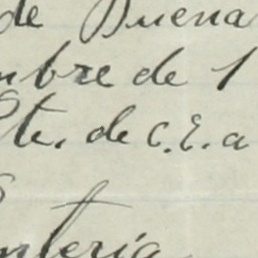 de Buena
mbre de 1
Ste. de C.E. a
nteria